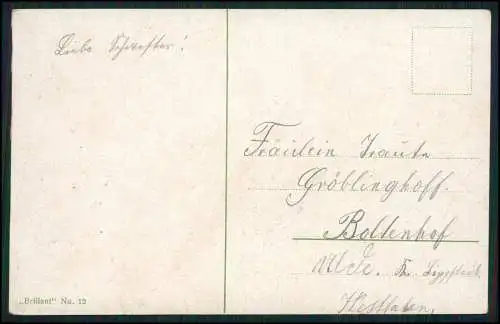 Liebe Schwester!
Fräulein Traute
Gröblinghoff.
Boltenhof
Kr. Lippstadt.
Westfalen,
„Brillant" No. 12